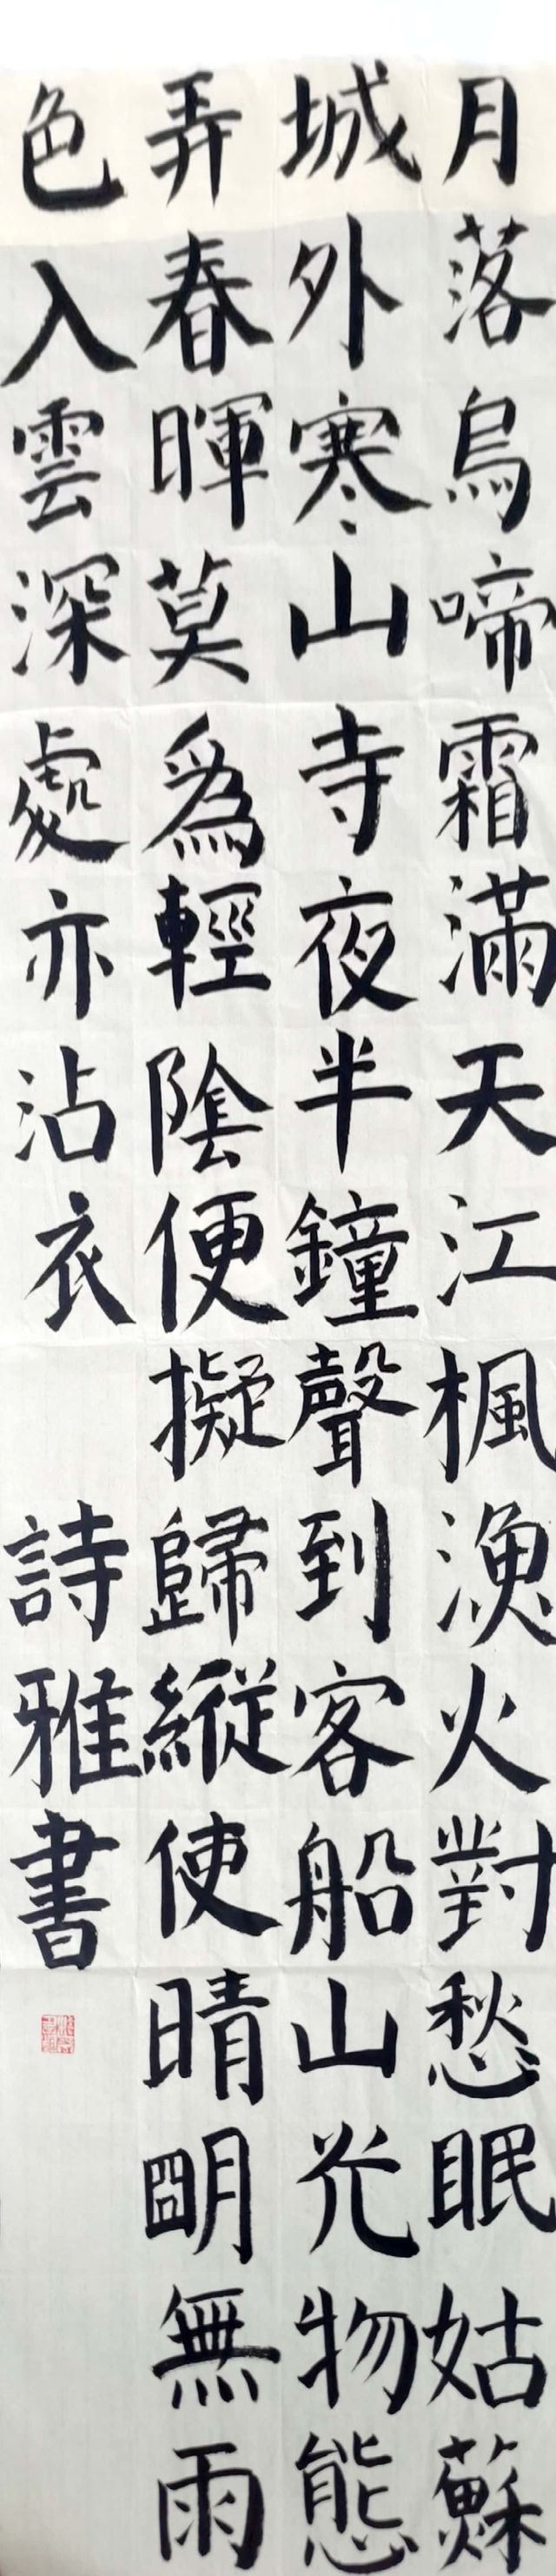 月落烏啼霜滿天江楓漁火對愁眠姑蘇
城外寒山寺夜半鐘聲到客船山光物態
弄春暉莫爲輕陰便擬歸縱使晴明無雨
色入雲深處亦沾衣
詩雅書